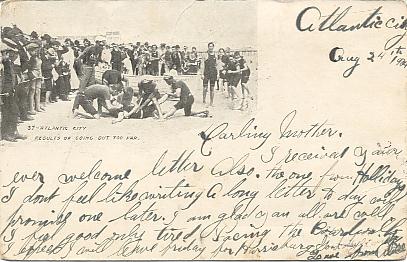 Atlantic city
Aug 24th
37-ATLANTIC CITY
RESULTS OF GOING OUT TOO FAR.
Darling Mother.
I received your
ever welcome letter also. the one from Holliday
I dont feel like writing a long letter to day will
promise one later. I am glad you all are well
I feel good only tired
I expect I will leave friday for Harrisburg
Love from